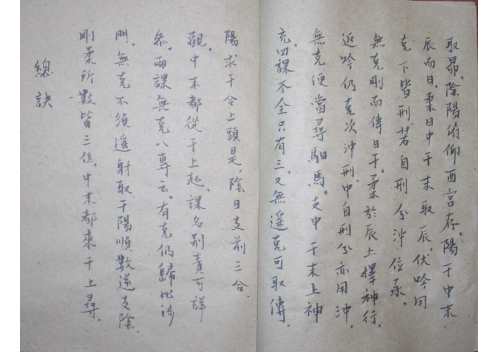 取昴，陰陽俯仰酉宮存。陽干中末
辰而日，柔日中干末取辰。伏吟用
克下皆刑，若自刑分沖位承。
無克剛而傳日干，柔於辰上擇神行。
返吟仍克次沖刑，中自刑分亦用沖，
無克便當尋馹馬，支中干末上神
充。四課不全只有三，又無遙克可取傳，
陽求干合上頭是，陰日支前三合
觀，中末都從干上起，課名別責可詳
參。兩課無克八專云，有克仍歸比涉
無克不須遙射取，干陽順數逆支陰
剛柔所數皆三位，中末都來干上尋。
總訣